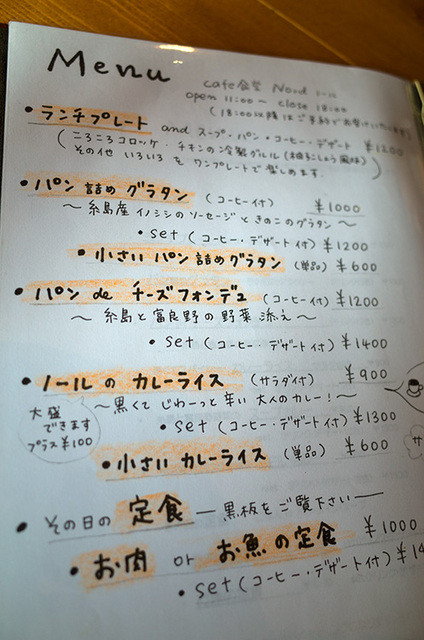 Menu
cafe食堂 Nord ノール
open 11:00〜 close 18:00
(18:00以降はご予約でお受けいたします)
• ランチプレート and スープ・パン・コーヒー・デザート ¥1200
(ころころコロッケ・チキンの冷製グリル(柚子こしょう風味)
その他 いろいろ を ワンプレートで楽しめます.)
• パン詰めグラタン (コーヒー付) ¥1000
〜糸島産イノシシのソーセージときのこのグラタン〜
• set (コーヒー・デザート付) ¥1200
• 小さいパン詰めグラタン (単品) ¥600
• パン de チーズフォンデュ (コーヒー付) ¥1200
〜糸島と富良野の野菜添え〜
• set (コーヒー・デザート付) ¥1400
• ノールのカレーライス (サラダ付) ¥900
〜黒くてじわーっと辛い大人のカレー!〜
大盛
できます
プラス¥100
• set (コーヒー・デザート付) ¥1300
• 小さいカレーライス (単品) ¥600
サ
• その日の定食 ― 黒板をご覧下さい ―
• お肉 or お魚の定食 ¥1000
• set (コーヒー・デザート付) ¥14